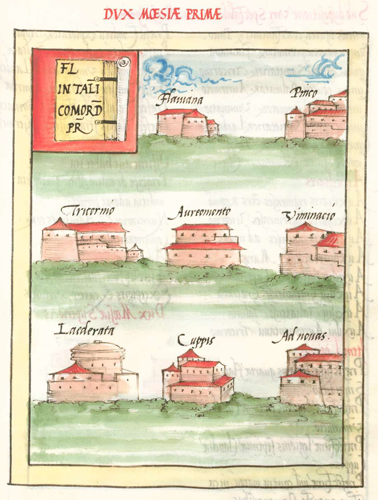 DVX MŒSIÆ PRIMÆ
FL
INTALI
COMORD
PR
Flauiana
Pinco
Tricornio
Aureomonto
Viminacio
Laederata
Cuppis
Ad nouas